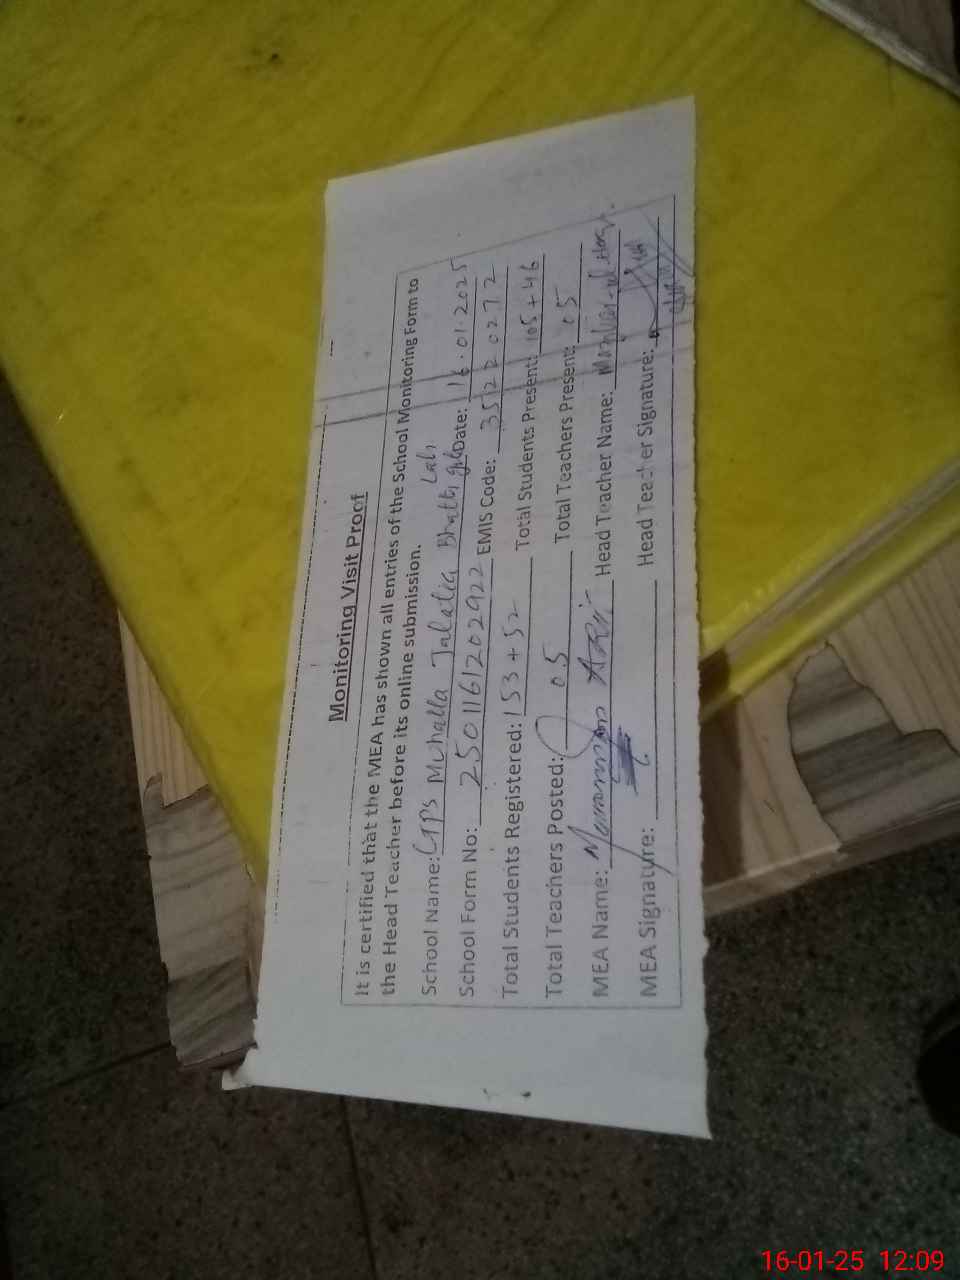 Monitoring Visit Proof
It is certified that the MEA has shown all entries of the School Monitoring Form to
the Head Teacher before its online submission.
School Name: GPS Muhalla Jalalia Bhatti Date: 16.01.2025
School Form No: 2501161202922 EMIS Code: 35220272
Total Students Registered: 153 + 52 Total Students Present: 105 + 46
Total Teachers Posted: 05 Total Teachers Present: 05
MEA Name: Head Teacher Name:
MEA Signature: Head Teacher Signature:
16-01-25 12:09